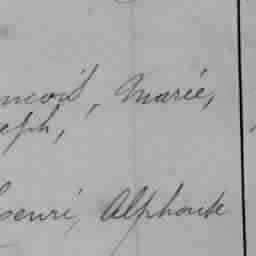 ncois, Marie,
eph,
Henri, Alphonse